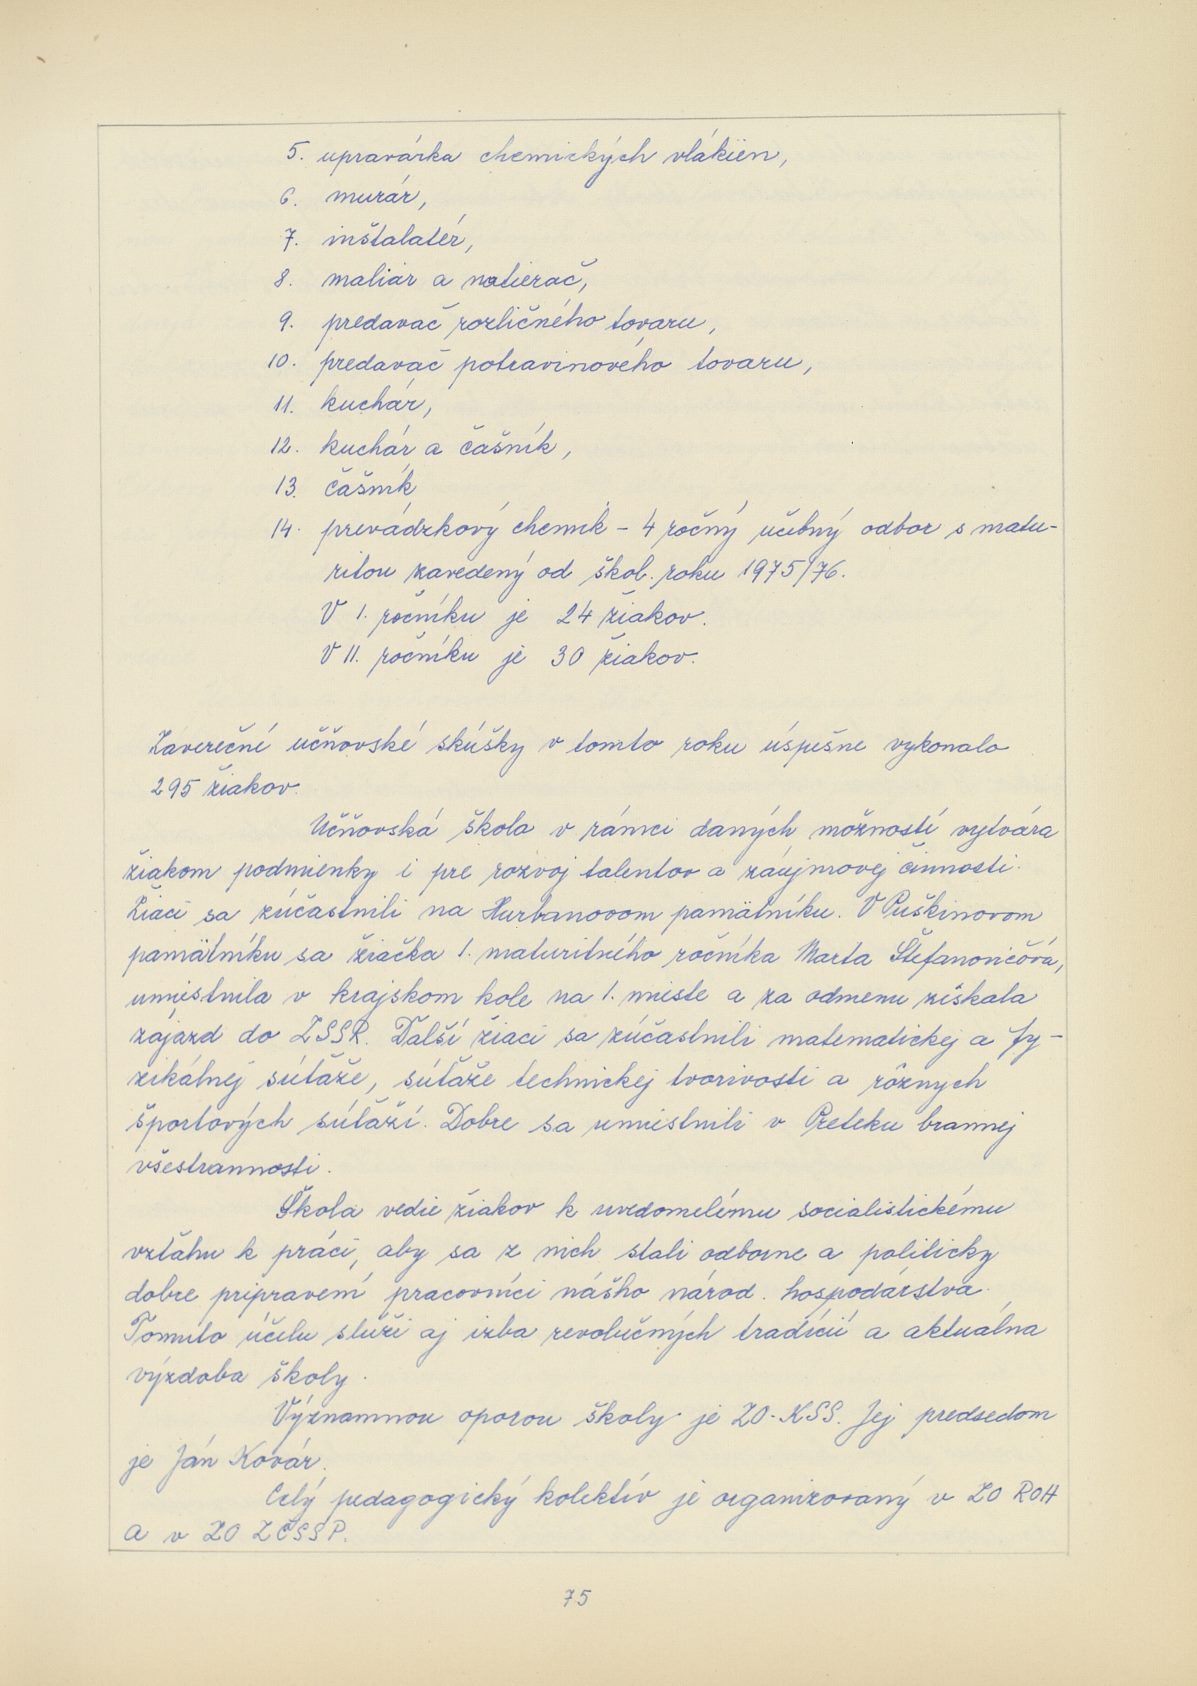 5. upravárka chemických vlákien,
6. murár,
7. inštalatér,
8. maliar a natierač,
9. predavač rozličného tovaru,
10. predavač potravinového tovaru,
11. kuchár,
12. kuchár a čašník,
13. čašník
14. prevádzkový chemik - 4 ročný učebný odbor s matu-
ritou zavedený od škol. roku 1975/76.
V I. ročníku je 24 žiakov.
V II. ročníku je 30 žiakov.
Záverečné učňovské skúšky v tomto roku úspešne vykonalo
295 žiakov.
Učňovská škola v rámci daných možností vytvára
žiakom podmienky i pre rozvoj talentov a záujmovej činnosti.
Žiaci sa zúčastnili na Hurbanovom pamätníku. V Puškinovom
pamätníku sa žiačka 1. maturitného ročníka Marta Štefanovičová,
umiestnila v krajskom kole na 1. mieste a za odmenu získala
zájazd do ZSSR. Ďalší žiaci sa zúčastnili matematickej a fy-
zikálnej súťaže, súťaže technickej tvorivosti a rôznych
športových súťaží. Dobre sa umiestnili v Preteku brannej
všestrannosti.
Škola vedie žiakov k uvedomelému socialistickému
vzťahu k práci, aby sa z nich stali odborne a politicky
dobre pripravení pracovníci nášho národ. hospodárstva.
Tomuto účelu slúži aj izba revolučných tradícií a aktuálna
výzdoba školy.
Významnou oporou školy je ZO-KSS. Jej predsedom
je Ján Kovár.
Celý pedagogický kolektív je organizovaný v ZO ROH
a v ZO ZČSSP.
75